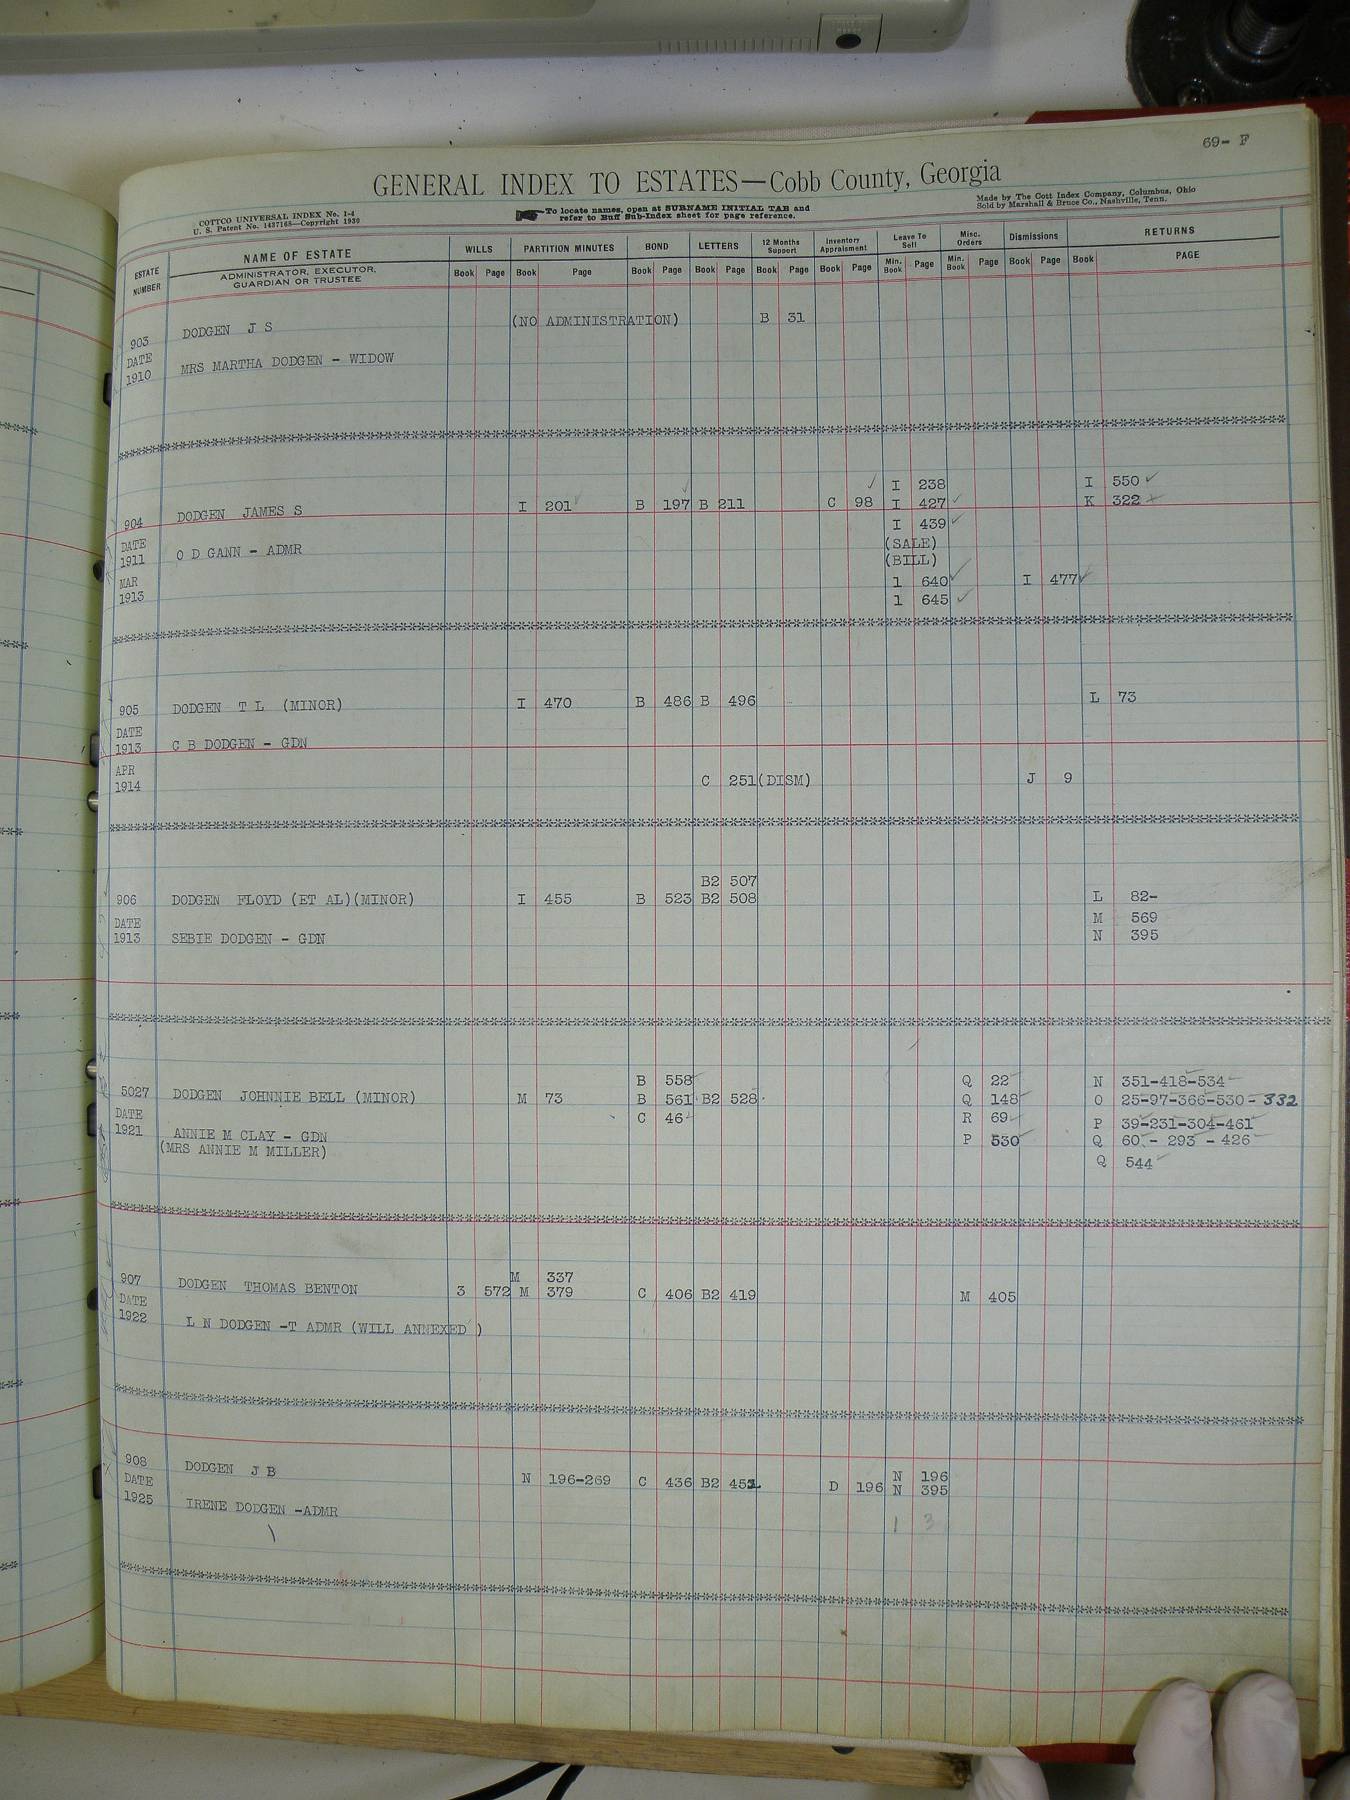 69- F
GENERAL INDEX TO ESTATES—Cobb County, Georgia
COTTCO UNIVERSAL INDEX No. 1-4
U. S. Patent No. 1437168—Copyright 1930
To locate names, open at SURNAME INITIAL TAB and
refer to Buff Sub-Index sheet for page reference.
Made by The Cott Index Company, Columbus, Ohio
Sold by Marshall & Bruce Co., Nashville, Tenn.
ESTATE NUMBER NAME OF ESTATE WILLS PARTITION MINUTES BOND LETTERS 12 Months Support Inventory Appraisment Leave To Sell Misc. Orders Dismissions RETURNS
ADMINISTRATOR, EXECUTOR, GUARDIAN OR TRUSTEE Book Page Book Page Book Page Book Page Book Page Book Page Min. Book Page Min. Book Page Book Page Book PAGE
903 DODGEN J S (NO ADMINISTRATION) B 31
DATE
1910 MRS MARTHA DODGEN - WIDOW
I 238 I 550
904 DODGEN JAMES S I 201 B 197 B 211 C 98 I 427 K 322
I 439
DATE (SALE)
1911 O D GANN - ADMR (BILL)
MAR 1 640 I 477
1913 1 645
905 DODGEN T L (MINOR) I 470 B 486 B 496 L 73
DATE
1913 C B DODGEN - GDN
APR
1914 C 251(DISM) J 9
B2 507
906 DODGEN FLOYD (ET AL)(MINOR) I 455 B 523 B2 508 L 82-
DATE M 569
1913 SEBIE DODGEN - GDN N 395
B 558 Q 22 N 351-418-534
5027 DODGEN JOHNNIE BELL (MINOR) M 73 B 561 B2 528 Q 148 O 25-97-366-530-332
DATE C 46 R 69 P 39-231-304-461
1921 ANNIE M CLAY - GDN P 530 Q 60 - 293 - 426
(MRS ANNIE M MILLER) Q 544
M 337
907 DODGEN THOMAS BENTON 3 572 M 379 C 406 B2 419 M 405
DATE
1922 L N DODGEN -T ADMR (WILL ANNEXED )
908 DODGEN J B N 196-269 C 436 B2 451 D 196 N 196
DATE N 395
1925 IRENE DODGEN -ADMR
1 3